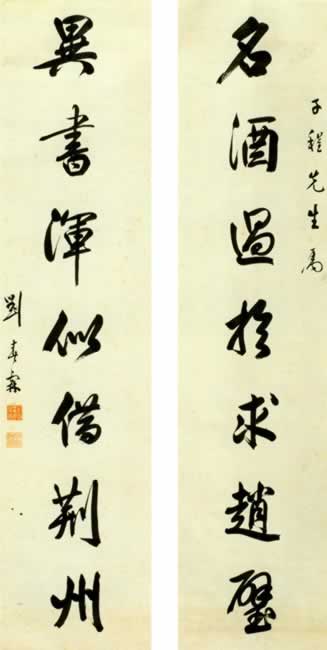 子程先生属
名酒過於求趙璧
異書渾似借荊州
劉春霖